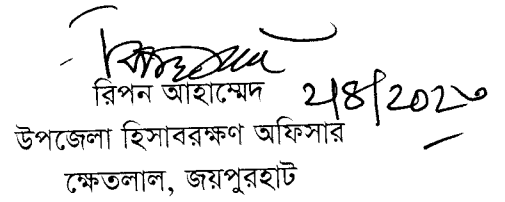 রিপন আহাম্মেদ
উপজেলা হিসাবরক্ষণ অফিসার
ক্ষেতলাল, জয়পুরহাট